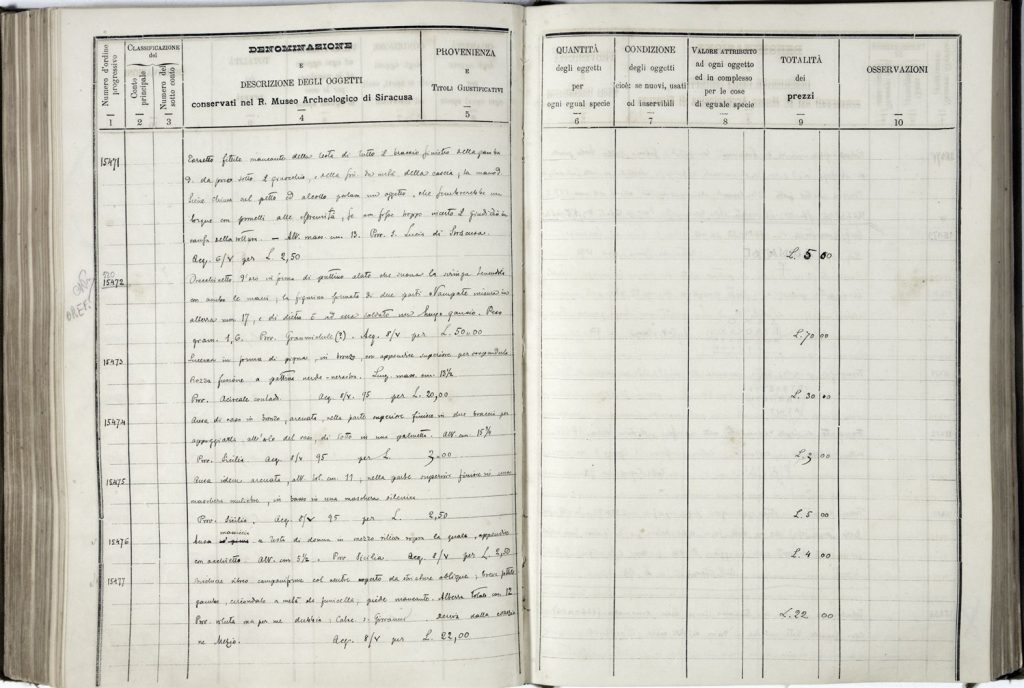 Numero d'ordine progressivo
CLASSIFICAZIONE del
Conto principale
Numero del sotto conto
DENOMINAZIONE
E
DESCRIZIONE DEGLI OGGETTI
conservati nel R. Museo Archeologico di Siracusa
PROVENIENZA
E
TITOLI GIUSTIFICATIVI
1 2 3 4 5
15471
mancante della testa di tutto il braccio sinistro della gamba
D. da poco sotto il ginocchio, e della
petto ed alcolto
torque con pometti alle
causa della rottura. — Alt. mass. cm. 13. Prov. S. Lucia di Siracusa.
Acq. 6/V per L. 2,50
15472
Orecchinetto d'oro in forma di puttino alato che suona la siringa tenendola
con ambo le mani; la figurina formata di due parti stampate misura in
altezza mm. 17, e di dietro è ad essa saldato un lungo gancio. Peso
gram. 1,6. Prov. Grammichele (?). Acq. 8/V per L. 50.00
15473
in forma di pigna, in bronzo, con appendice superiore per sospenderlo
Rozza fusione a patina verde-nerastra. Lung. mass. cm. 13½
Prov. Acireale contado. Acq. 8/V. 95 per L. 20,00
15474
Ansa di vaso in bronzo, arcuata, nella parte superiore finisce in due braccia per
appoggiarla all'orlo del vaso, di sotto in una palmetta. Alt. cm. 15½
Prov. Sicilia. Acq. 8/V 95 per L. 3.00
15475
Ansa idem arcuata, alt. tot. cm. 11, nella parte superior finisce in una
maschera muliebre, in basso in una maschera silenica
Prov. Sicilia. Acq. 8/V 95 per L. 2,50
15476
Ansa massiccia a testa di donna in mezzo rilievo sopra la quale, appendice
con occhietto Alt. cm. 5½. Prov. Sicilia Acq. 8/V per L. 2,50
15477
campaniforme col ventre coperto da striature oblique; breve
gamba, circondata a metà da funicella; piede Altezza totale cm. 12
Prov. ma per me dubbia: Catac. S. Giovanni. deriva dalla collezio-
ne Mezio. Acq. 8/V per L. 22,00
QUANTITÀ
degli oggetti
per
ogni egual specie
CONDIZIONE
degli oggetti
cioè: se nuovi, usati
od inservibili
VALORE ATTRIBUITO
ad ogni oggetto
ed in complesso
per le cose
di eguale specie
TOTALITÀ
dei
prezzi
OSSERVAZIONI
6 7 8 9 10
L. 5 00
L. 70 00
L. 30 00
L. 3 00
L. 5 00
L. 4 00
L. 22 00